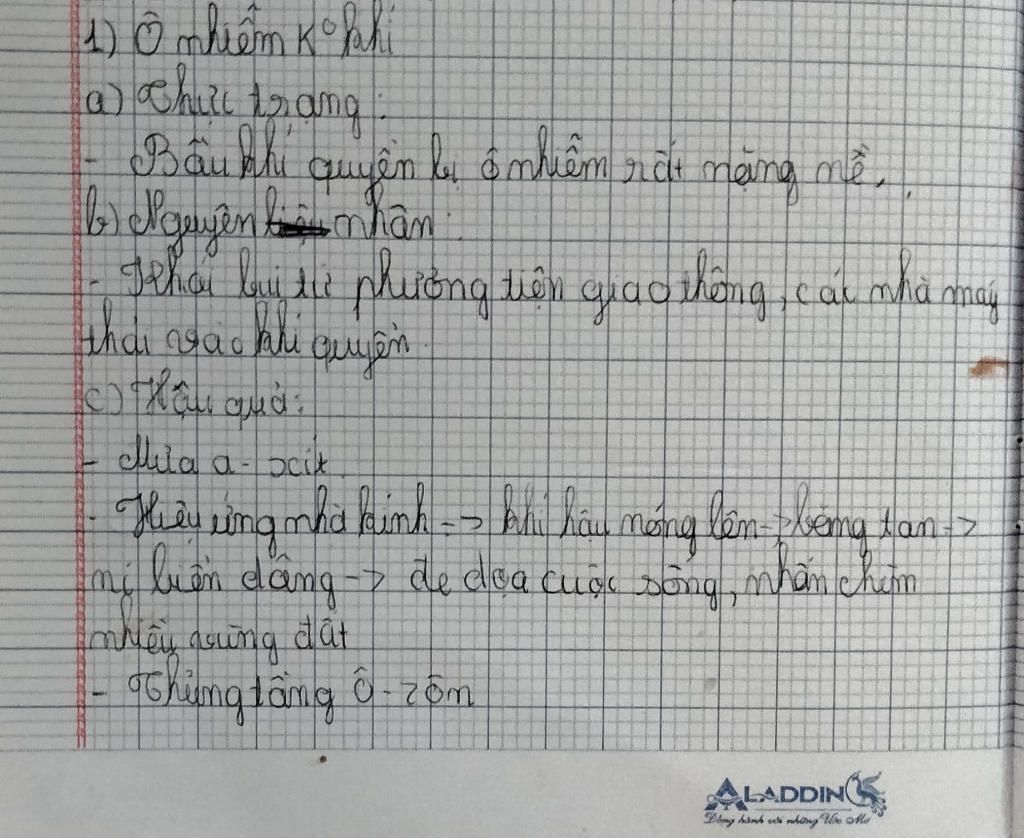 1) Ô nhiễm K° khí
a) Thực trạng:
- Bầu khí quyển bị ô nhiễm rất nặng nề.
b) Nguyên nhân:
- Khói bụi từ phương tiện giao thông, các nhà máy
thải vào khí quyển
c) Hậu quả:
- Mưa a-xít
- Hiệu ứng nhà kính -> khí hậu nóng lên -> băng tan ->
nc biển dâng -> đe dọa cuộc sống, nhấn chìm
nhiều vùng đất
- Thủng tầng ô-zôn
ALADDIN
Đồng hành với những Ước Mơ